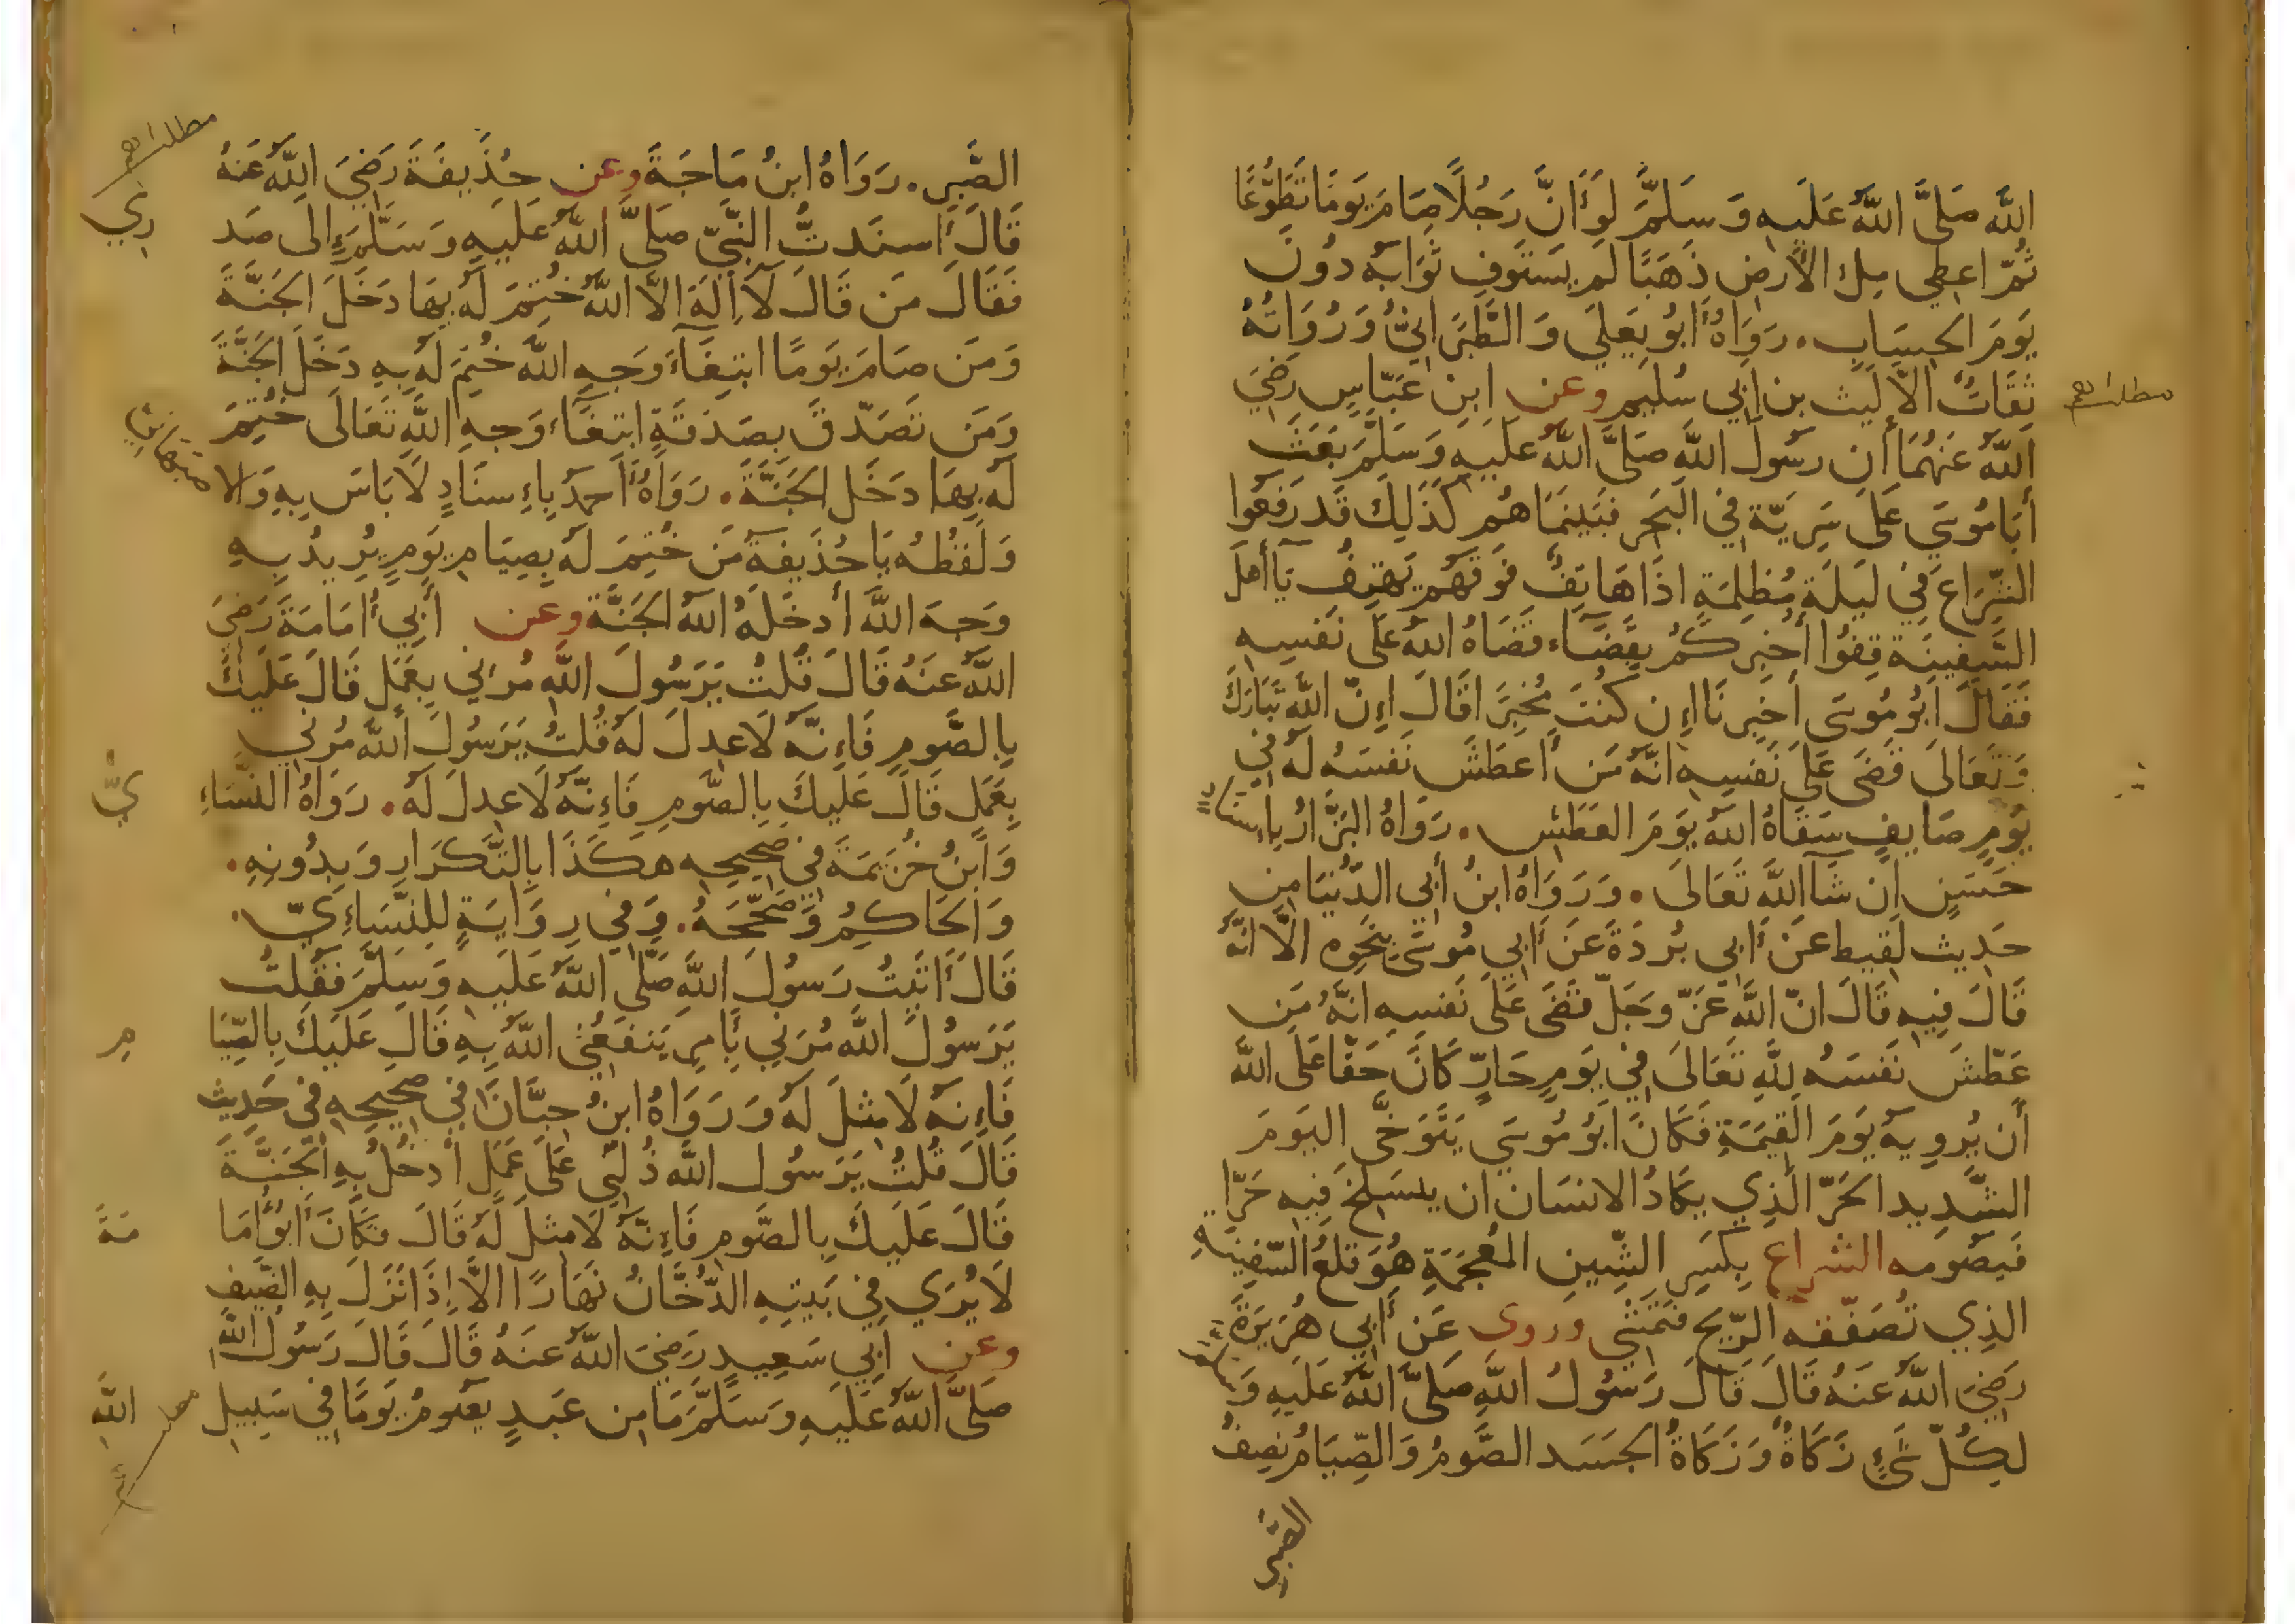 اللَّه صَلَّى اللَّهُ عَلَيهِ وَسَلَّمَ لَوْ أَنَّ رَجُلًا صَامَ يَومًا تَطَوُّعًا
ثُمَّ اعطِي مِلءَ الأَرضِ ذَهَبًا لَم يَستَوفِ ثَوَابَهُ دُونَ
يَومَ الحِسَابِ. رَوَاهُ أَبُو يَعلِي وَالطَّبَرَانِيُّ وَرُوَاتُهُ
ثِقَاتٌ الَّا لَيث بن ابي سُلَيمٍ وعن ابنِ عَبَّاسٍ رَضِيَ
مطلب أهم
اللَّهُ عَنهُمَا أَن رَسُولَ اللَّهِ صَلَّى اللَّهُ عَلَيهِ وَسَلَّمَ بَعَثَ
أَبَا مُوسَي عَلَى سَرِيَّة فِي البَحرِ فَبَينَمَا هُم كَذَلِكَ قَد رَفَعُوا
الشِّرَاعَ فِي لَيلَةٍ مُظلِمَةٍ اذَا هَاتِفٌ فَوقَهُم يَهتِفُ يَا أَهلَ
السَّفِينَةِ قِفُوا أُخبِركُم بِقَضَاءٍ قَضَاهُ اللَّهُ عَلَى نَفسِهِ
فَقَالَ أَبُو مُوسَى أَخبِرنَا إِن كُنتَ مُخبِرًا قَالَ إِنَّ اللَّهَ تَبَارَكَ
وَتَعَالَى قَضَى عَلَى نَفسِهِ انَّهُ مَن أَعطَشَ نَفسَهُ لَهُ فِي
يَومٍ صَايِفٍ سَقَاهُ اللَّهُ يَومَ العَطَشِ. رَوَاهُ البَزَّارُ بِإِسنَادٍ
حَسَنٍ اِن شَآ اللَّهُ تَعَالَى. وَرَوَاهُ ابنُ أَبِي الدُّنيَا مِن
حَدِيث لَقِيط عَن أَبِي بُردَةَ عَن أَبِي مُوسَى بِنَحوِه الَّا انَّهُ
قَالَ فِيهِ قَالَ انَّ اللَّهَ عَزَّ وَجَلَّ قَضَى عَلَى نَفسِهِ انَّهُ مَن
عَطَّشَ نَفسَهُ لِلَّهِ تَعَالَى فِي يَومٍ حَارٍّ كَانَ حَقًّا عَلَى اللَّه
أَن يُروِيَهُ يَومَ القِيَمَةِ فَكَانَ أَبُو مُوسَي يَتَوَخَّى اليَومَ
الشَّدِيد الحَرّ الَّذِي يَكَادُ الانسَان ان يَنسَلِخَ فِيهِ حَرًّا
فَيَصُومه الشراع بِكَسرِ الشِّينِ المُعجَمَةِ هُوَ قلعُ السَّفِينَةِ
الَّذِي تُصَفِّقه الرِّيحُ فَتَمشِي وروى عَن أَبِي هُرَيرَةَ
رَضِيَ اللَّهُ عَنهُ قَالَ قَالَ رَسُولُ اللَّهِ صَلَّى اللَّهُ عَلَيهِ وَسلم
لِكُلِّ شَيءٍ زَكَاةٌ وَزَكَاةُ الجَسَد الصَّومُ وَالصِّيَامُ نِصفُ
الصَّبرِ
مطلب أهم
الصَّبرِ. رَوَاهُ ابنُ مَاجَةَ وعن حُذَيفَةَ رَضِيَ اللَّهُ عَنهُ
قَالَ أَسنَدتُّ النَّبِيَّ صَلَّى اللَّهُ عَلَيهِ وَسَلَّمَ إِلَى صَد رِي
فَقَالَ مَن قَالَ لَا إِلَهَ الَّا اللَّهُ خُتِمَ لَهُ بِهَا دَخَلَ الجَنَّةَ
وَمَن صَامَ يَومًا ابتِغَآءَ وَجهِ اللَّهِ خُتِمَ لَهُ بِهِ دَخَلَ الجَنَّةَ
وَمَن تَصَدَّقَ بِصَدَقَةٍ ابتِغَآءَ وَجهِ اللَّهِ تَعَالَى خُتِمَ
لَهُ بِهَا دَخَلَ الجَنَّةَ. رَوَاهُ أَحمَدُ بِإِسنَادٍ لَا بَاسَ بِهِ وَالا صبهاني
وَلَفظُهُ يَا حُذَيفَةَ مَن خُتِمَ لَهُ بِصِيَامِ يَومٍ يُرِيدُ بِهِ
وَجهَ اللَّهِ أَدخَلَهُ اللَّهُ الجَنَّةَ وعن أَبِي أُمَامَةَ رَضِيَ
اللَّهُ عَنهُ قَالَ قُلتُ يَرَسُولَ اللَّهِ مُرنِي بِعَمَلٍ قَالَ عَلَيكَ
بِالصَّومِ فَإِنَّهُ لَا عِدلَ لَهُ قُلتُ يَرَسُولَ اللَّهِ مُرنِي
بِعَمَلٍ قَالَ عَلَيكَ بِالصَّومِ فَإِنَّهُ لَا عِدلَ لَهُ. رَوَاهُ النَّسَاءِ يُّ
وَابنُ خُزَيمَةَ فِي صَحِيحِهِ هكَذَا بِالتَّكرَارِ وَبِدُونِهِ.
وَالحَاكِمُ وَصَحَّحَهُ. وَفِي رِوَايَةٍ لِلنَّسَاءِيِّ.
قَالَ أَتَيتُ رَسُولَ اللَّهِ صَلَّى اللَّهُ عَلَيهِ وَسَلَّمَ فَقُلتُ
يَرَسُولَ اللَّهِ مُرنِي بِأَمرٍ يَنفَعُنِي اللَّهُ بِهِ قَالَ عَلَيكَ بِالصِّيَا مِ
فَإِنَّهُ لَا مِثلَ لَهُ وَرَوَاهُ ابنُ حِبَّانَ فِي صَحِيحِهِ فِي حَدِيث
قَالَ قُلتُ يَرَسُول اللَّه دُلَّنِي عَلَى عَمَلٍ أَدخُلُ بِهِ الجَنَّةَ
قَالَ عَلَيكَ بِالصَّومِ فَإِنَّهُ لَا مِثلَ لَهُ قَالَ فَكَانَ أَبُو أُمَا مَةَ
لَا يُرَي فِي بَيتِهِ الدُّخَّانُ نَهَارًا الَّا إِذَا نَزَلَ بِهِ الضَّيفِ
وعن أَبِي سَعِيدٍ رَضِيَ اللَّهُ عَنهُ قَالَ قَالَ رَسُولُ اللَّه
صَلَّى اللَّهُ عَلَيهِ وَسَلَّمَ مَا مِن عَبدٍ يَصُومُ يَومًا فِي سَبِيلِ اللَّهِ